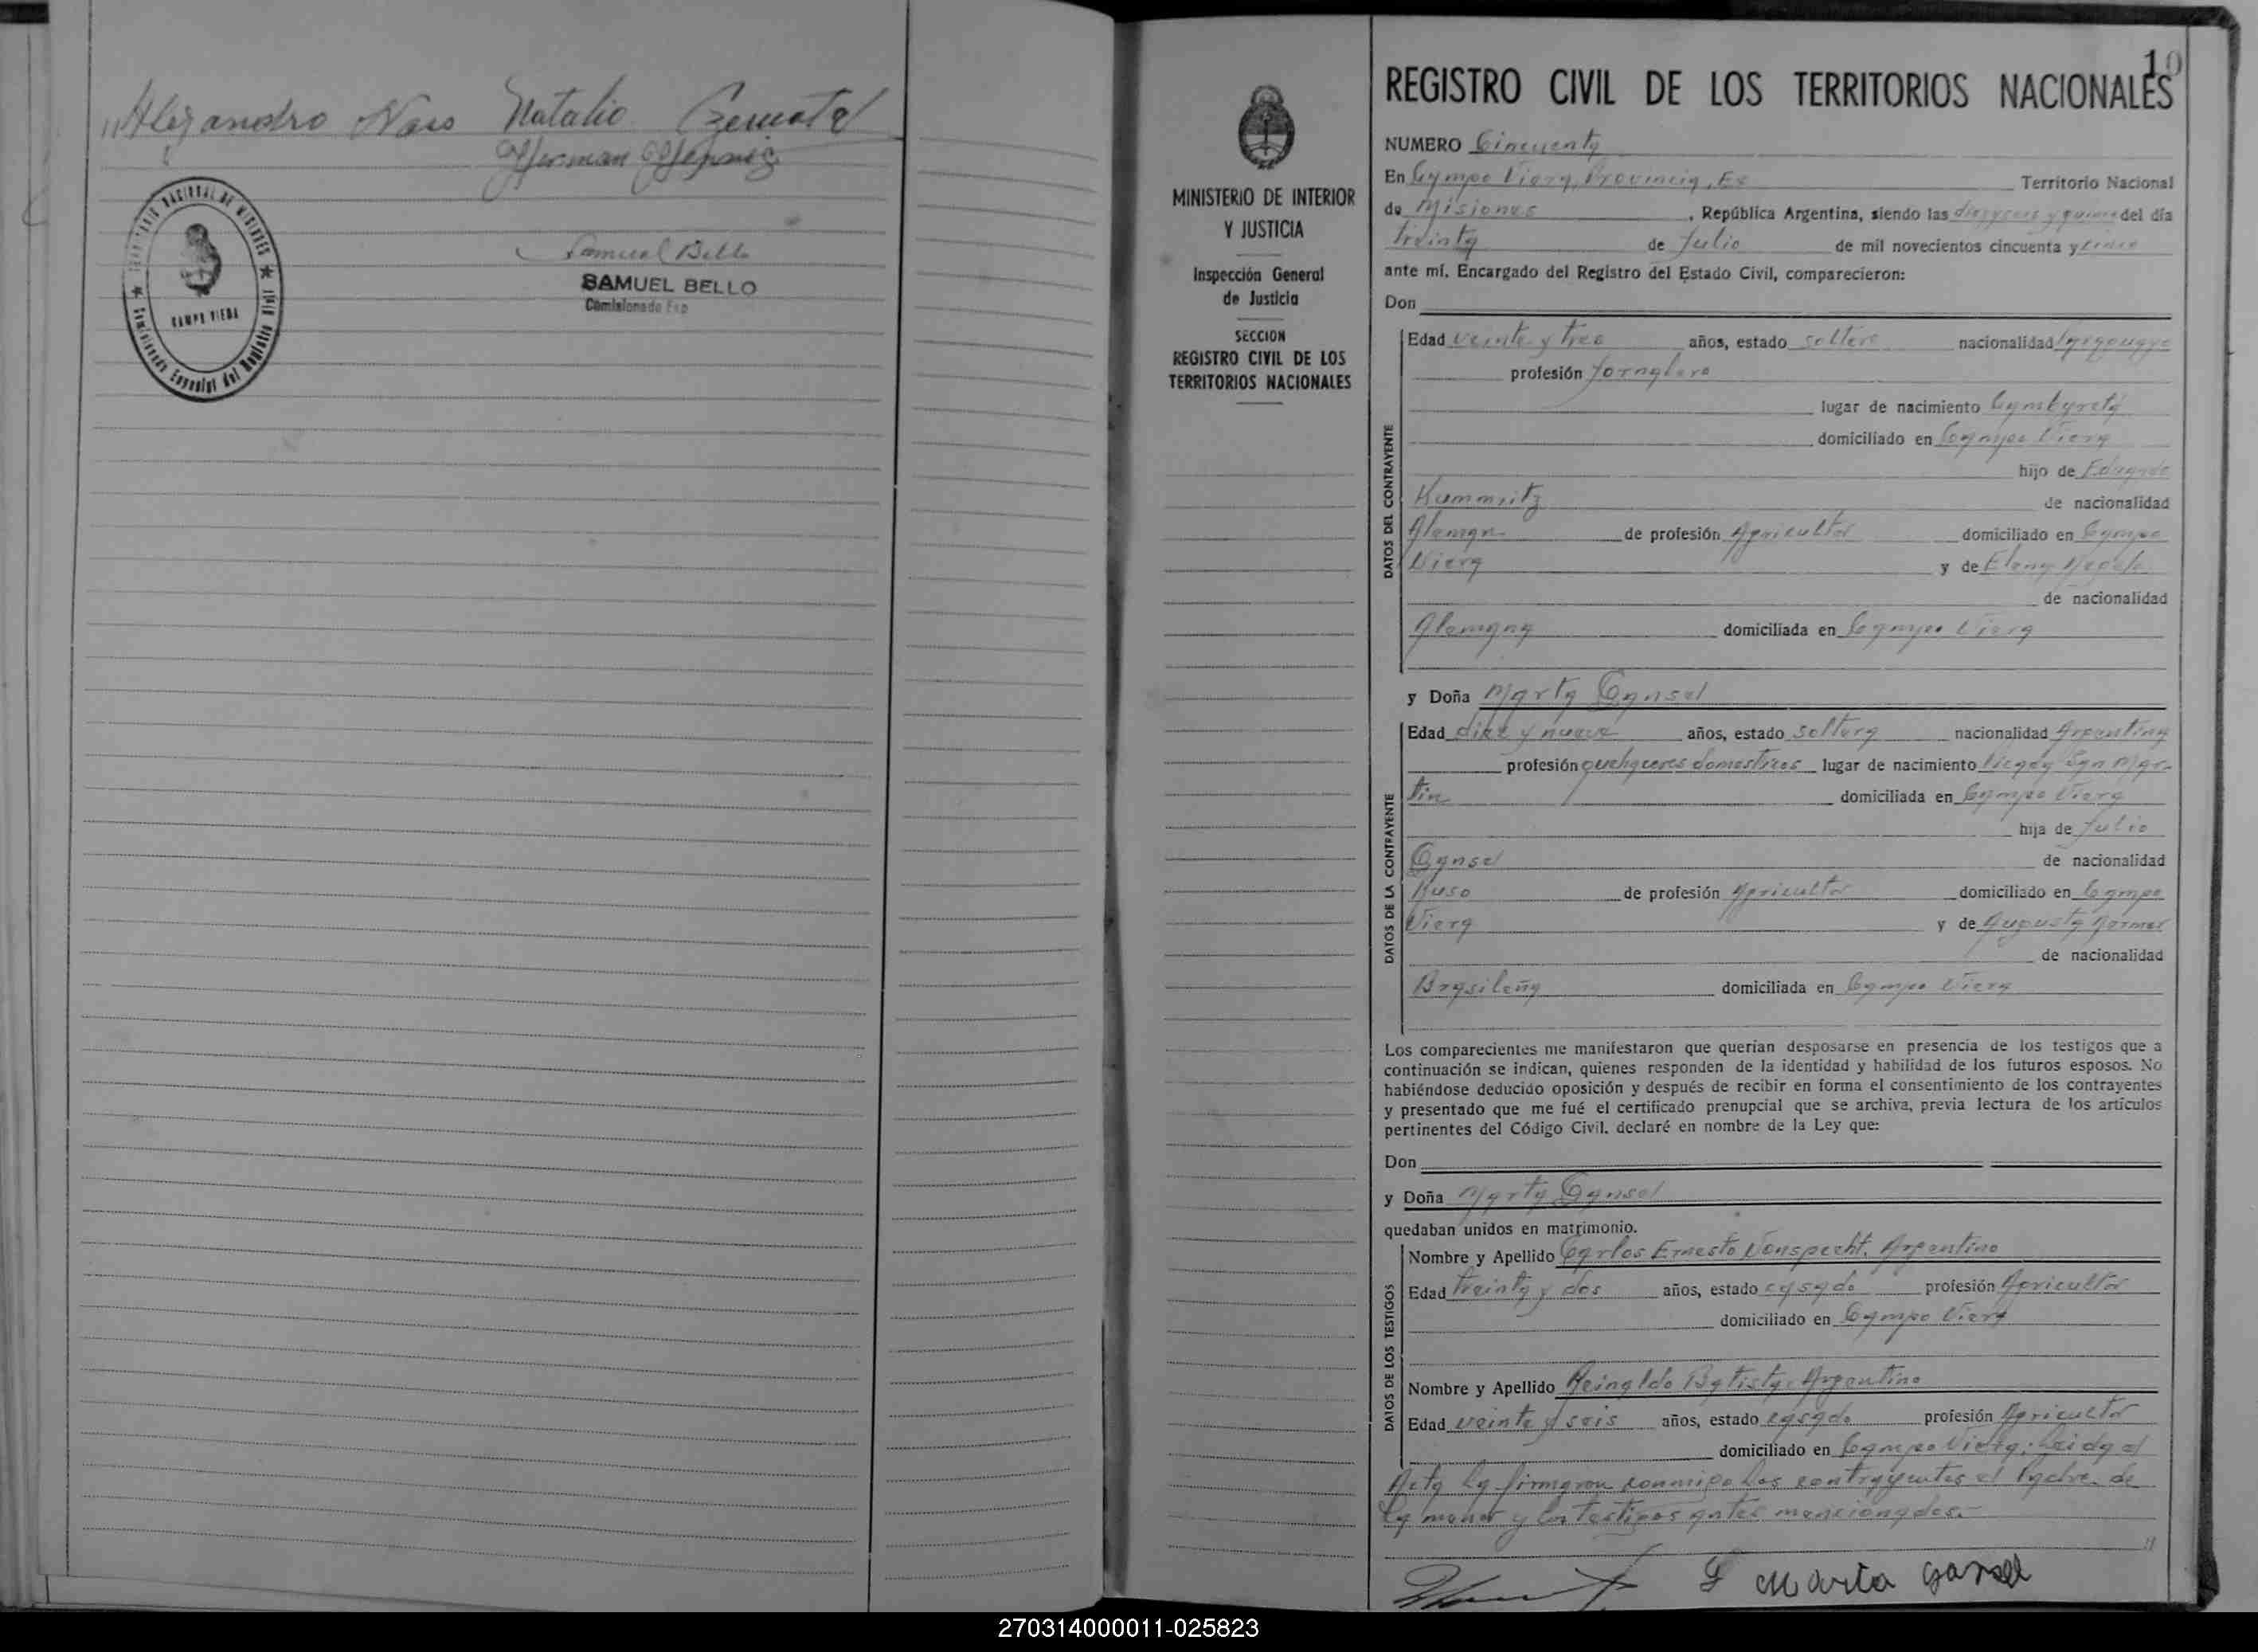 Alejandro Naso Natalio
Herman
TERRITORIO NACIONAL DE MISIONES
CAMPO VIERA
Comisionado Especial del Registro Civil
Samuel Bello
SAMUEL BELLO
Comisionado Esp
10
MINISTERIO DE INTERIOR
Y JUSTICIA
Inspección General
de Justicia
SECCION
REGISTRO CIVIL DE LOS
TERRITORIOS NACIONALES
REGISTRO CIVIL DE LOS TERRITORIOS NACIONALES
NUMERO Cincuenta
En Campo Viera, Provincia, Ex Territorio Nacional
de Misiones, República Argentina, siendo las diez y seis y quince del día
treinta de Julio de mil novecientos cincuenta y cinco
ante mí, Encargado del Registro del Estado Civil, comparecieron:
Don
DATOS DEL CONTRAYENTE
Edad veinte y tres años, estado soltero nacionalidad Paraguayo
profesión Jornalero
lugar de nacimiento Cambyretá
domiciliado en Campo Viera
hijo de Eduardo
Kummritz de nacionalidad
Aleman de profesión Agricultor domiciliado en Campo
Viera y de Elena
de nacionalidad
Alemana domiciliada en Campo Viera
y Doña Marta Gansel
DATOS DE LA CONTRAYENTE
Edad diez y nueve años, estado soltera nacionalidad Argentina
profesión quehaceres domesticos lugar de nacimiento Picada San Mar-
tin domiciliada en Campo Viera
hija de Julio
Gansel de nacionalidad
Ruso de profesión Agricultor domiciliado en Campo
Viera y de Augusta
de nacionalidad
Brasileña domiciliada en Campo Viera
Los comparecientes me manifestaron que querían desposarse en presencia de los testigos que a
continuación se indican, quienes responden de la identidad y habilidad de los futuros esposos. No
habiéndose deducido oposición y después de recibir en forma el consentimiento de los contrayentes
y presentado que me fué el certificado prenupcial que se archiva, previa lectura de los artículos
pertinentes del Código Civil, declaré en nombre de la Ley que:
Don
y Doña Marta Gansel
quedaban unidos en matrimonio.
DATOS DE LOS TESTIGOS
Nombre y Apellido Carlos Ernesto Vonspecht. Argentino
Edad treinta y dos años, estado casado profesión Agricultor
domiciliado en Campo Viera
Nombre y Apellido Reinaldo Batista. Argentino
Edad veinte y seis años, estado casado profesión Agricultor
domiciliado en Campo Viera. Leida el
Acta la firmaron conmigo los contrayentes el Padre de
la menor y los testigos antes mencionados.-
Marta Gansel
270314000011-025823